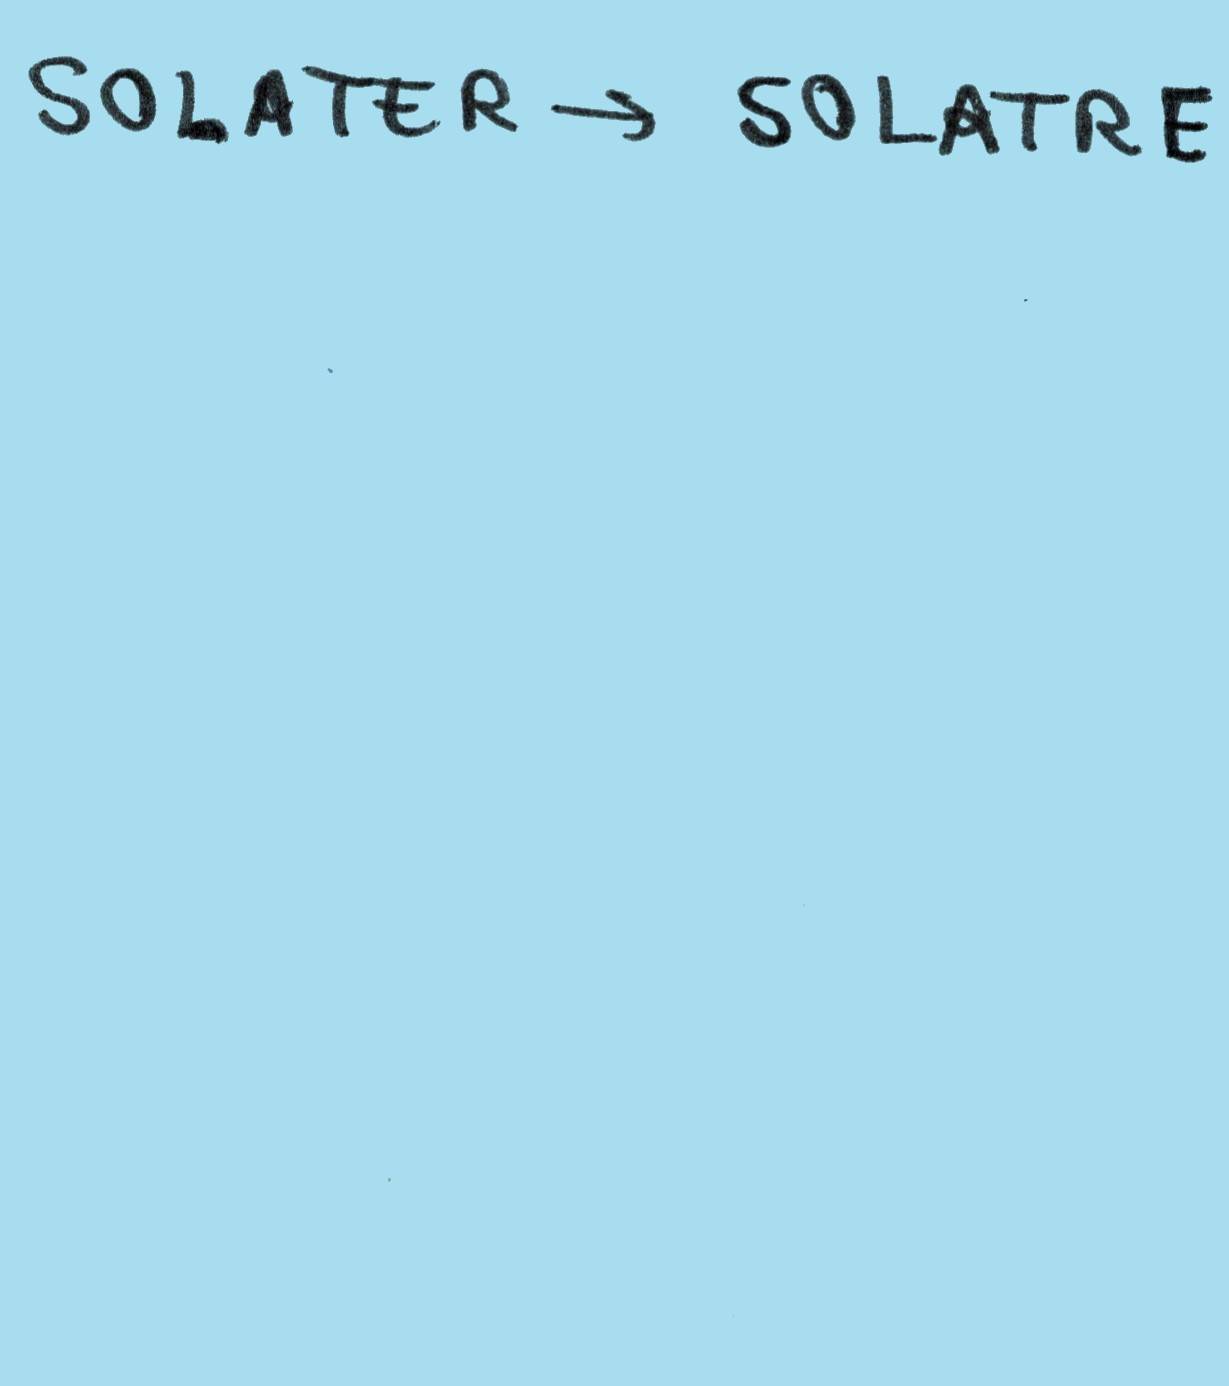 SOLATER → SOLATRE